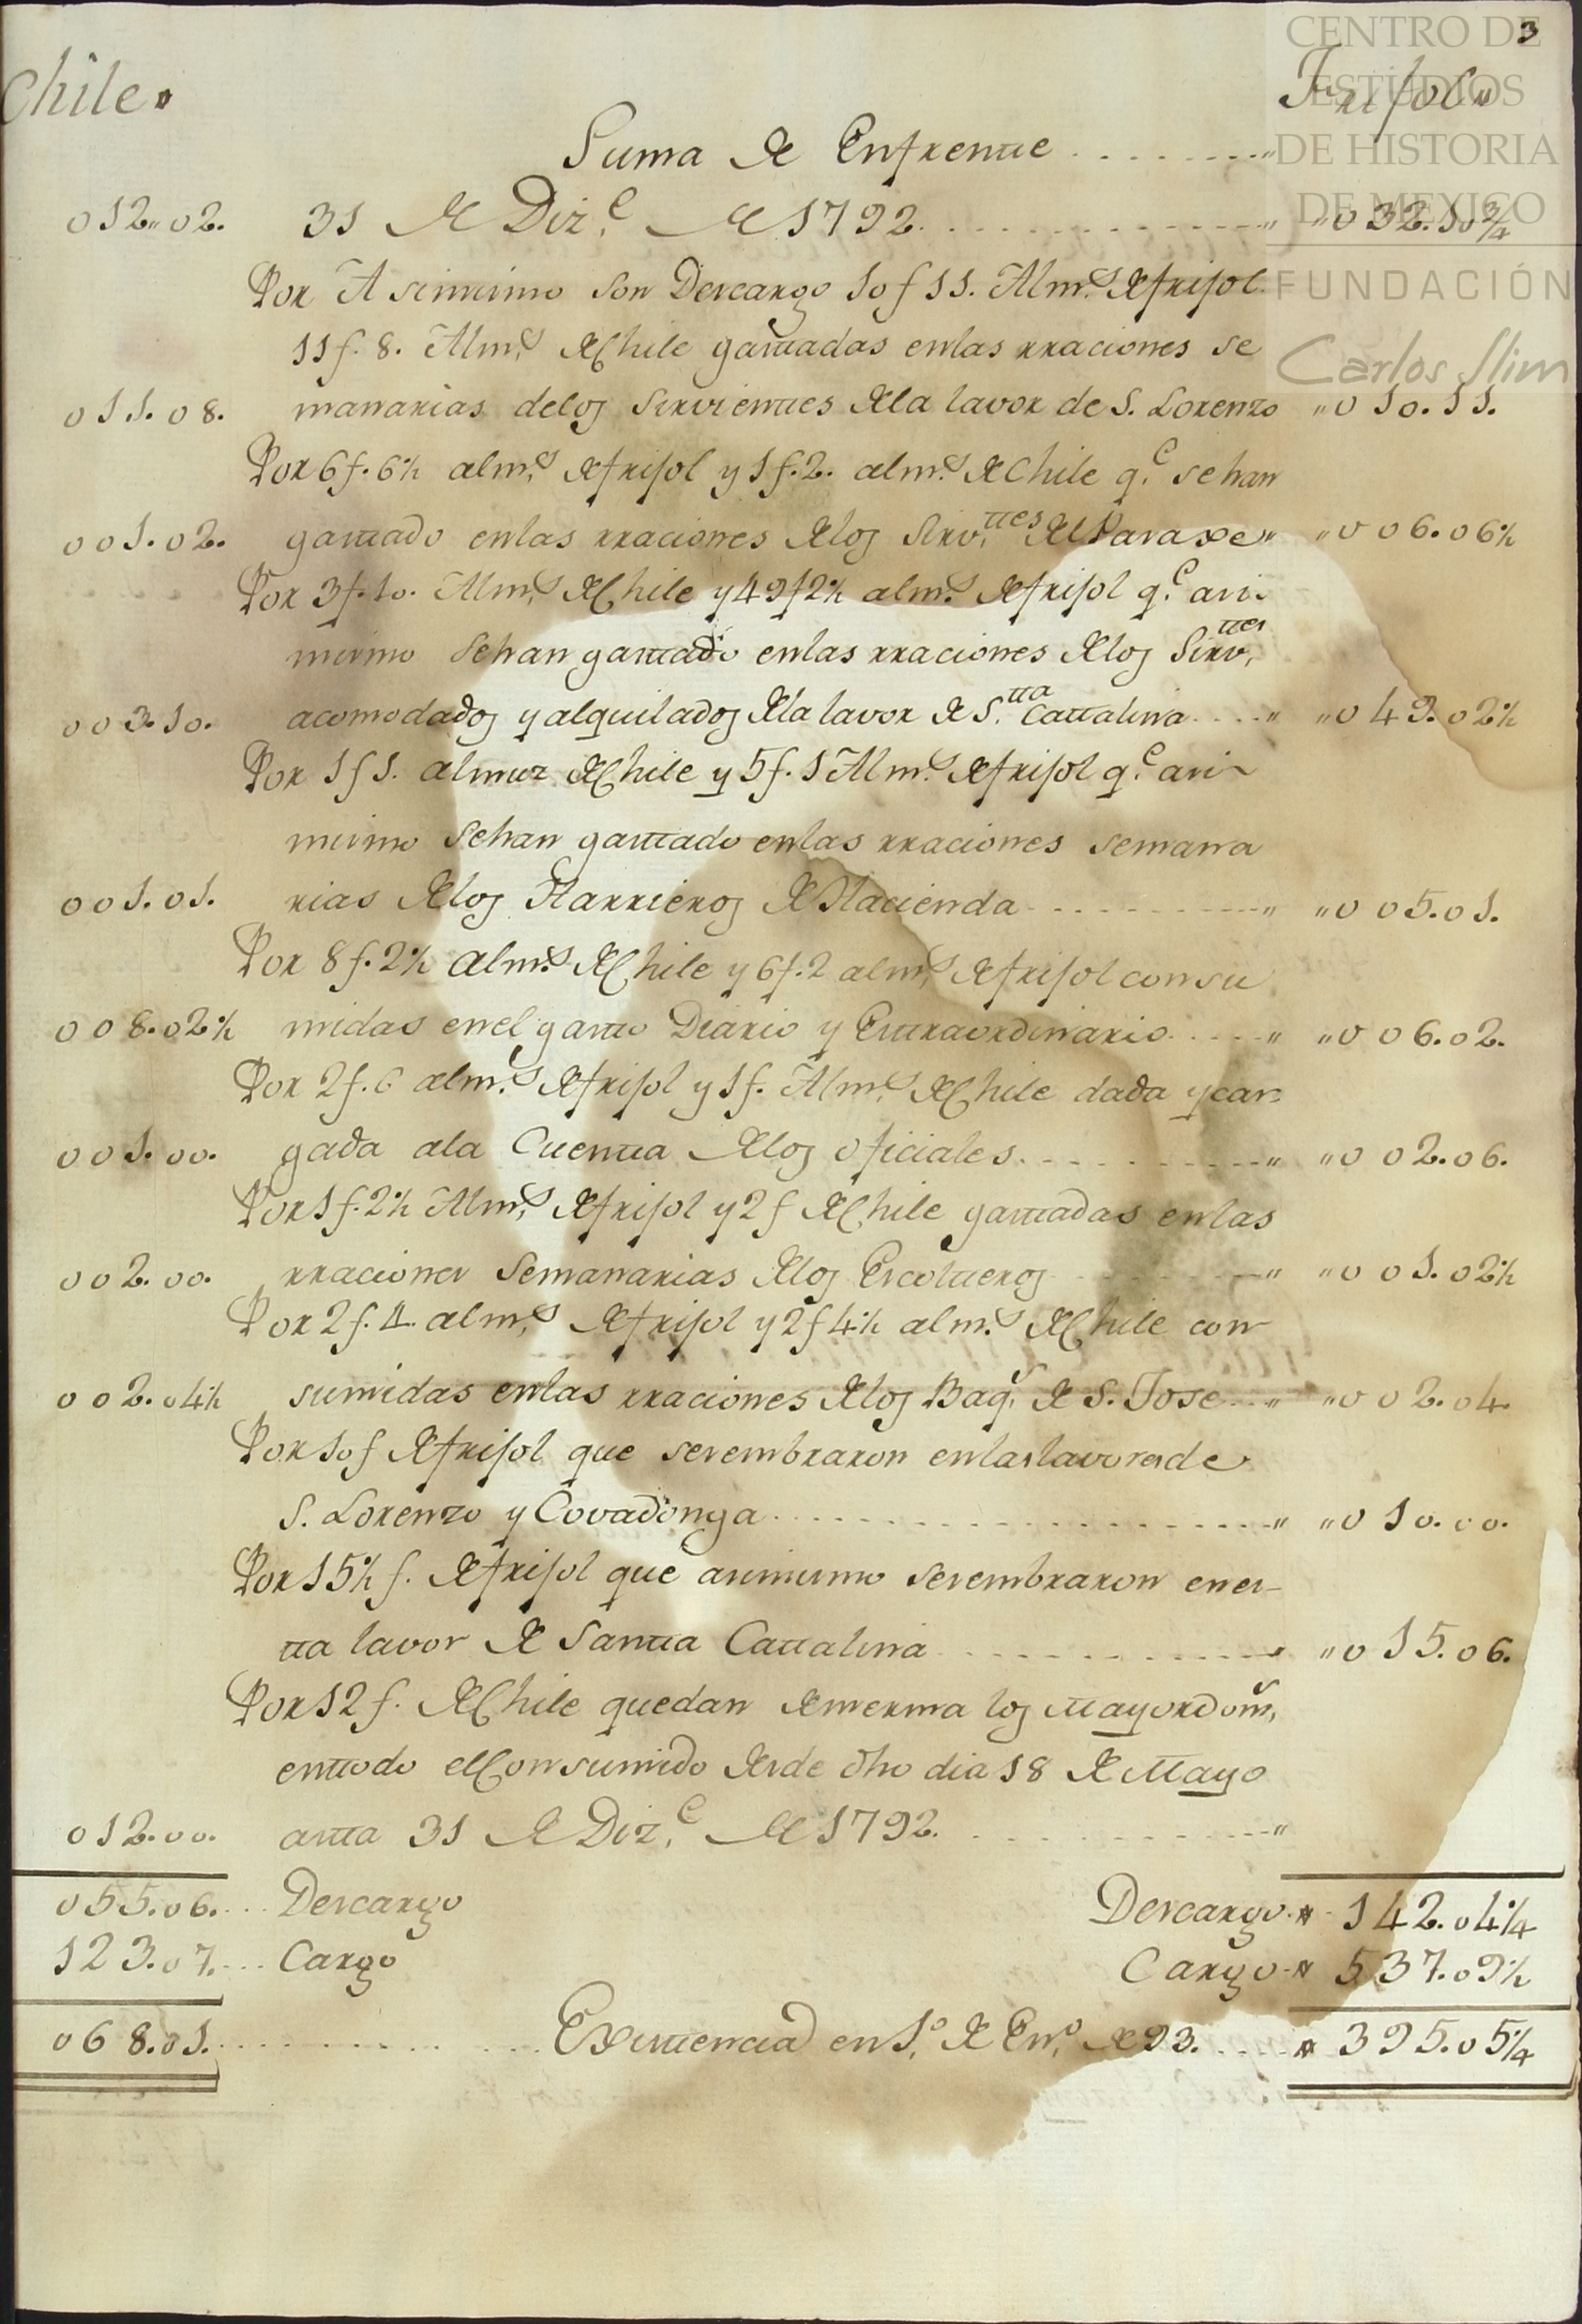 3
CENTRO DE
ESTUDIOS
DE HISTORIA
DE MEXICO
FUNDACIÓN
Carlos Slim
Chile. Frisol„
Suma de Enfrente ........„
012„02. 31 de Diz.e de 1792. ............„ „032.10¾
Por Asimismo son Descargo 10f 11. Alm.s de frisol
11f. 8. Alm.s de Chile gastadas en las rraciones se
011.08. manarias de los sirvientes de la lavor de S. Lorenzo „010.11.
Por 6f. 6½ alm.s de frisol y 1f. 2. alm.s de Chile q.e se han
001.02. gastado en las rraciones de los Sirv.ttes del Paraxe„ „006.06½
Por 3f. 10. Alm.s de Chile y 49f 2½ alm.s de frisol q.e asi-
mismo se han gastado en las rraciones de los Sirv.ttes
003.10. acomodados y alquilados de la lavor de S.tta Cattalina....„ „049.02½
Por 1f 1. almuz de Chile y 5f. 1 Alm.s de frisol q.e asi-
mismo se han gastado en las rraciones semana
001.01. rias de los Harrieros de Hacienda ...........„ „005.01.
Por 8f. 2½ alm.s de Chile y 6f. 2 alm.s de frisol consu
008.02½ midas en el gasto Diario y Exttraordinario.....„ „006.02.
Por 2f. 6 alm.s de frisol y 1f. Alm.s de Chile dada y car-
001.00. gada a la Cuenta de los oficiales..........„ „002.06.
Por 1f. 2½ Alm.s de frisol y 2f de Chile gastadas en las
002.00. rraciones Semanarias de los Escolteros ........„ „001.02½
Por 2f. 4. alm.s de frisol y 2f 4½ alm.s de Chile con
002.04½ sumidas en las rraciones de los Baq.s de S. Jose...„ „002.04.
Por 10f de frisol que se sembraron en las lavores de
S. Lorenzo y Covadonga...................„ „010.00.
Por 15½ f. de frisol que asimismo se sembraron en es-
ta lavor de Santa Cattalina ............„ „015.06.
Por 12 f. de Chile quedan de merma los Mayordom.s
en todo el Consumido desde dho dia 18 de Mayo
012.00. asta 31 de Diz.e de 1792. ............„
055.06.... Descargo Descargo. 142.04¼
123.07.... Cargo Cargo. 537.09½
068.01. .............. Existencia en 1.o de En.o de 93. ...... 395.05¼